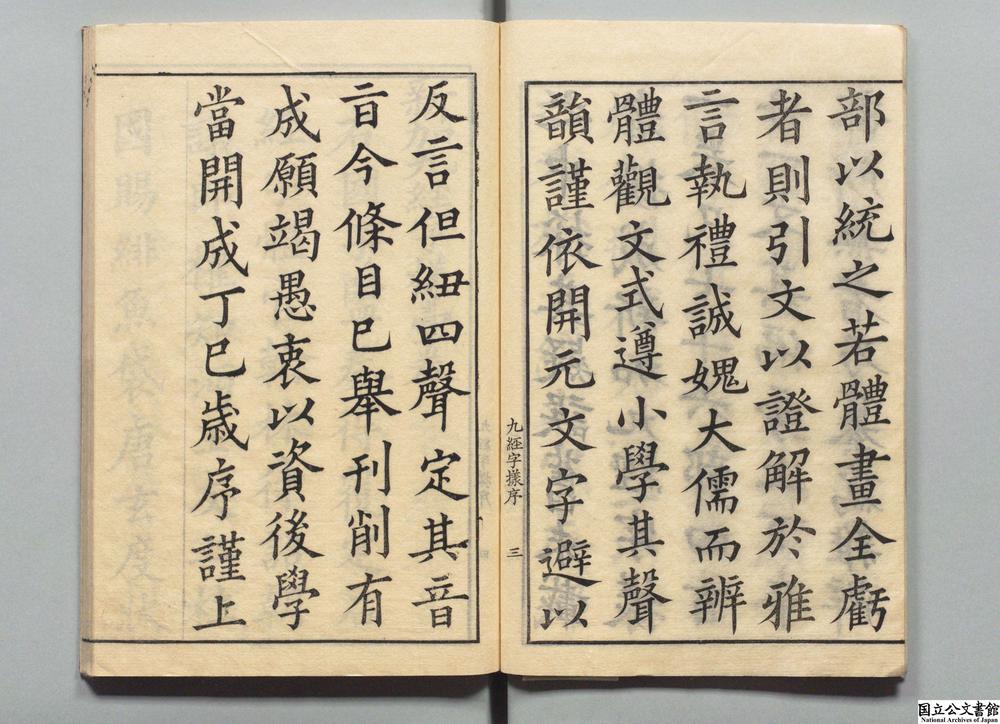 部以統之若體畫全虧
者則引文以證解於雅
言執禮誠媿大儒而辨
體觀文式遵小學其聲
韻謹依開元文字避以
九經字㨾序 三
反言但紐四聲定其音
旨今條目已舉刊削有
成願竭愚衷以資後學
當開成丁巳歲序謹上
国立公文書館
National Archives of Japan